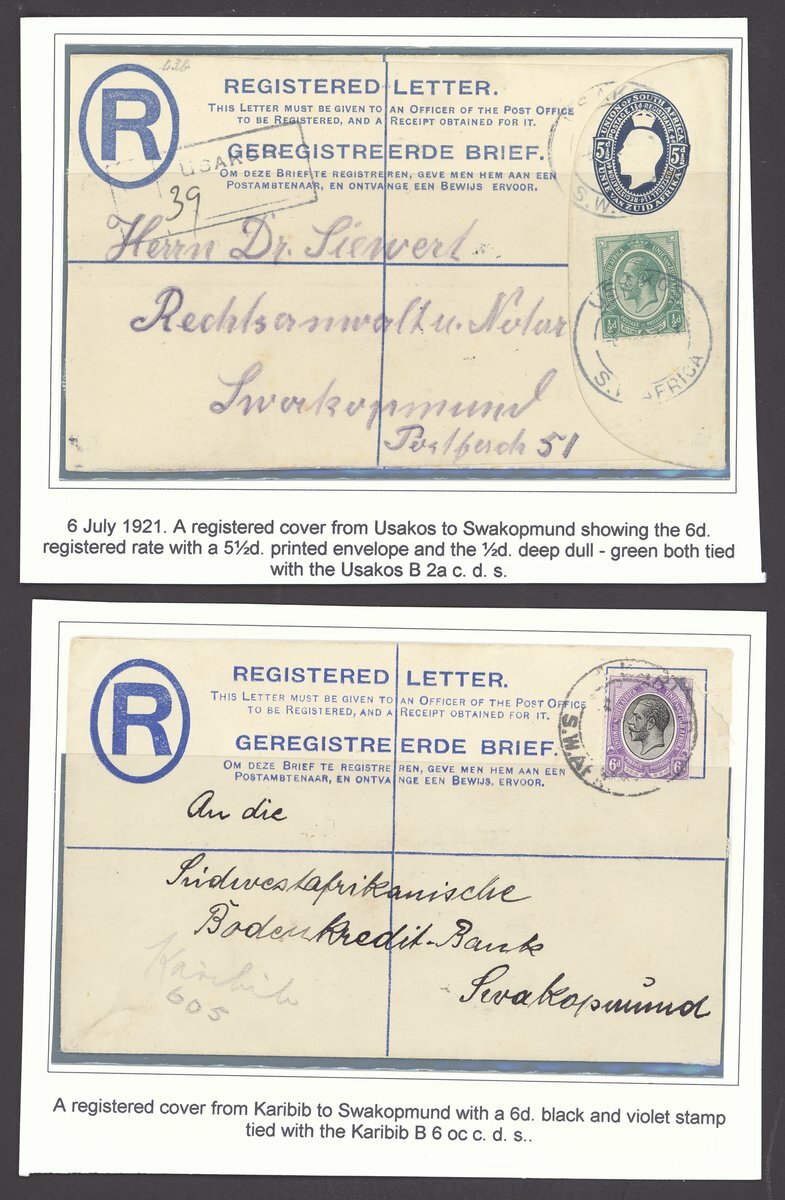 R
REGISTERED LETTER.
THIS LETTER MUST BE GIVEN TO AN OFFICER OF THE POST OFFICE
TO BE REGISTERED, AND A RECEIPT OBTAINED FOR IT.
GEREGISTREERDE BRIEF.
OM DEZE BRIEF TE REGISTREREN, GEVE MEN HEM AAN EEN
POSTAMBTENAAR, EN ONTVANGE EEN BEWIJS ERVOOR.
UNION OF SOUTH AFRICA
5½d 5½d
UNIE VAN ZUID AFRIKA
S.W.
USAKOS
39
½d ½d
S.W. AFRICA
Herrn Dr. Siewert
Rechtsanwalt u. Notar
Swakopmund
Postfach 51
6 July 1921. A registered cover from Usakos to Swakopmund showing the 6d.
registered rate with a 5½d. printed envelope and the ½d. deep dull - green both tied
with the Usakos B 2a c. d. s.
R
REGISTERED LETTER.
THIS LETTER MUST BE GIVEN TO AN OFFICER OF THE POST OFFICE
TO BE REGISTERED, AND A RECEIPT OBTAINED FOR IT.
GEREGISTREERDE BRIEF.
OM DEZE BRIEF TE REGISTREREN, GEVE MEN HEM AAN EEN
POSTAMBTENAAR, EN ONTVANGE EEN BEWIJS. ERVOOR.
S.W.AFR
6d 6d
An die
Südwestafrikanische
Bodenkredit-Bank
Swakopmünd
Karibib
605
A registered cover from Karibib to Swakopmund with a 6d. black and violet stamp
tied with the Karibib B 6 oc c. d. s..